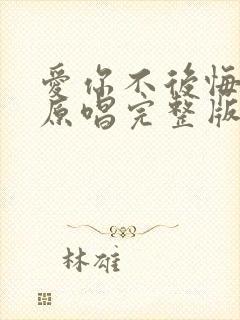 愛你不後悔
原唱完整版
林雄